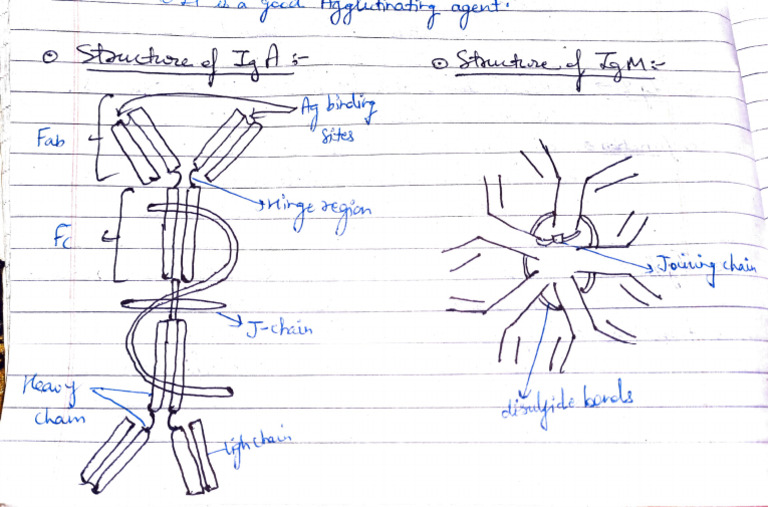 is a good Agglutinating agent.
⊙ Structure of IgA :-
⊙ Structure of IgM:-
Ag binding
sites
Fab
Hinge region
Fc
Joining chain
J-chain
Heavy
chain
disulfide bonds
Ligh chain